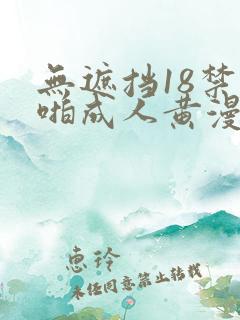 無遮挡18禁
啪成人黄漫
惠玲
未任同意禁止转载